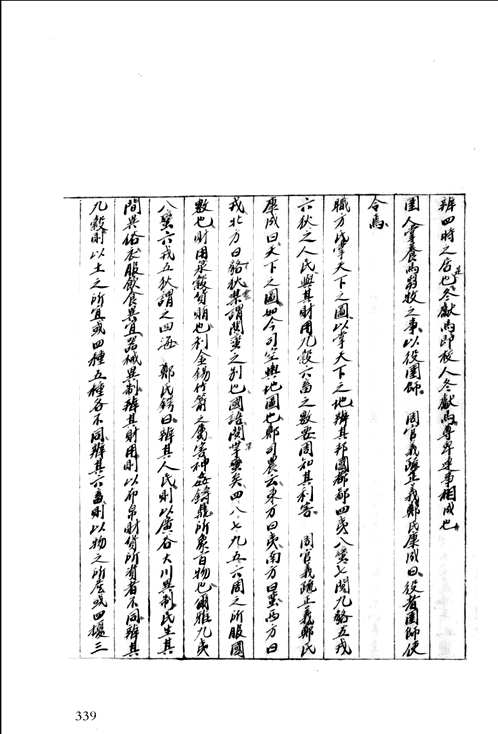 辨四時之居也冬獻馬即校人冬獻馬
圉人掌養馬芻牧之事以役圉師 周官義疏正義鄭氏康成曰役者圉師使
令焉
職方氏掌天下之圖以掌天下之地辨其邦國都鄙四夷八蠻七閩九貉五戎
六狄之人民與其財用九穀六畜之數要周知其利害 周官義疏正義鄭氏
康成曰天下之圖如今司空輿地圖也鄭司農云東方曰夷南方曰蠻西方曰
戎北方曰貉狄 閩蠻之別也國語閩羋蠻矣四八七九五六周之所服國
數也財用泉穀貨賄也利金錫竹箭之屬害神姦鑄鼎所象百物也爾雅九夷
八蠻六戎五狄謂之四海 鄭氏鍔曰辨其人民則以廣谷大川異制民生其
間異俗衣服飲食異宜器械異制辨其財用則以布帛財貨所資者不同辨其
九穀則以土之所宜或四種五種各不同辨其六畜則以物之所産或四擾三
339